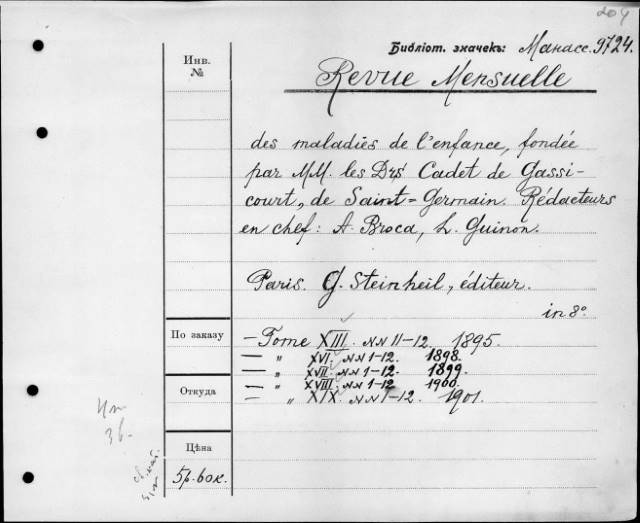 204
Библіот. значекъ: Манасс. 9724.
Инв.
№
Revue Mensuelle
des maladies de l'enfance, fondée
par MM. les Drs Cadet de Gassi-
court, de Saint=Germain. Rédacteurs
en chef: A. Broca, L. Guinon.
Paris. G. Steinheil, éditeur.
in 8°
По заказу
— Tome XIII. NN 11-12. 1895.
— „ XVI. NN 1-12. 1898.
— „ XVII. NN 1-12. 1899.
— „ XVIII. NN 1-12 1900.
— „ XIX. NN 1-12. 1901.
Откуда
Цѣна
5р. 60к.